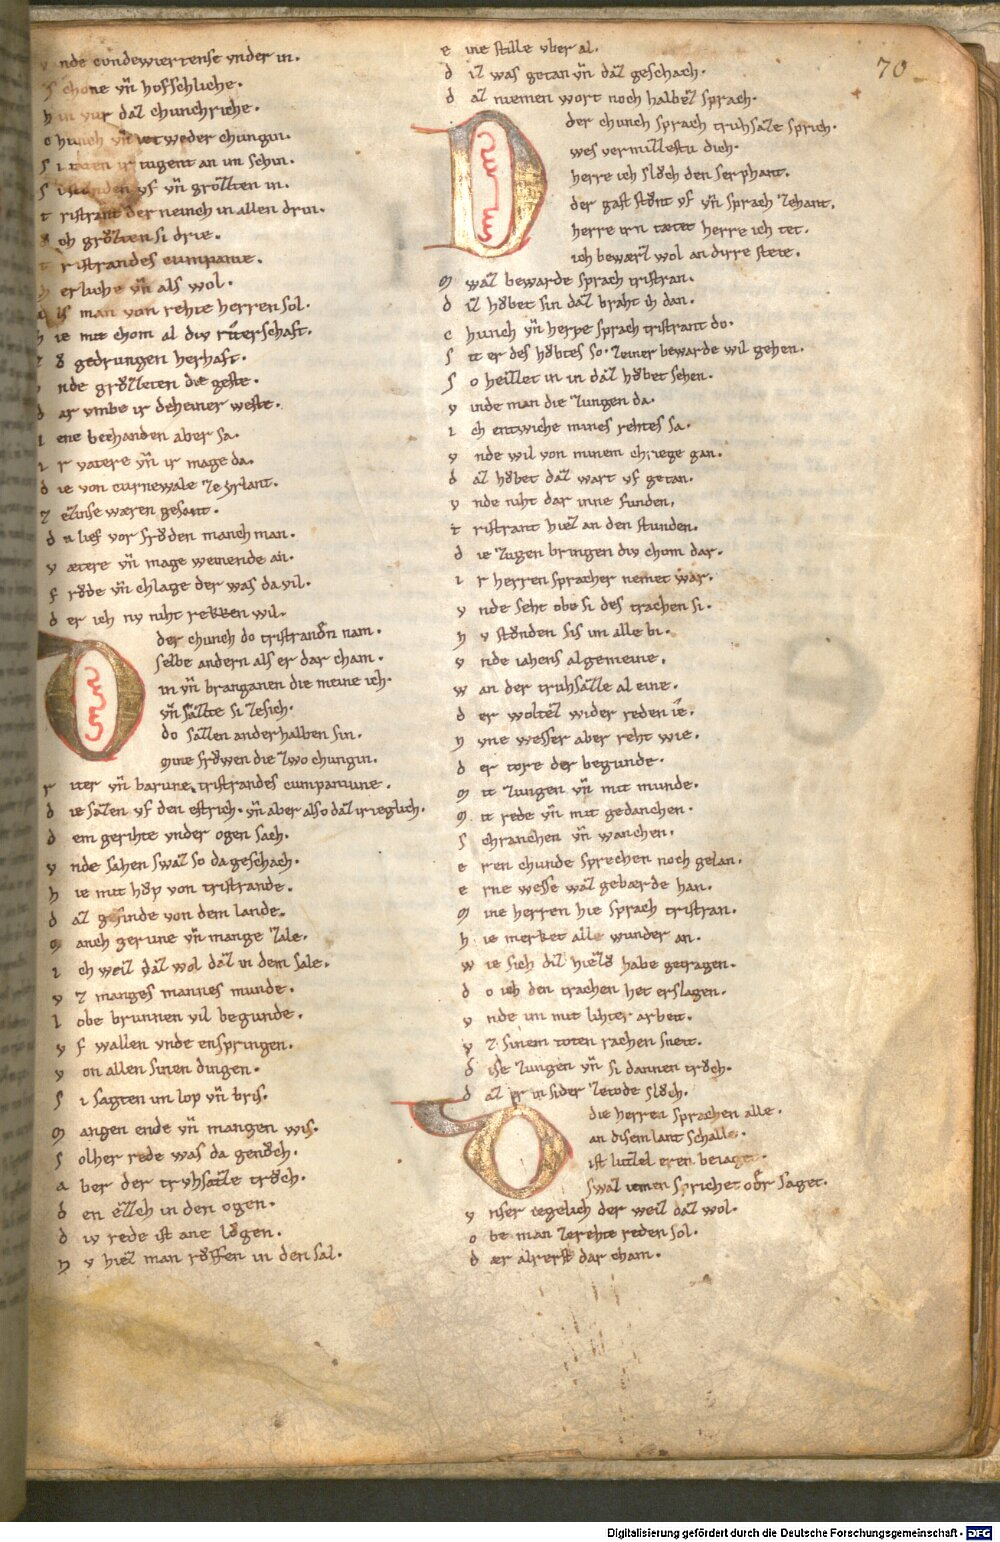 v nde condewiertense vnder in.
s chone vn̄ hofschliche.
h in vur daz chunchriche.
c hunch vn̄ ietweder chungin.
s i taten ir tugent an im schin.
s i stunden vf vn̄ grůzten in.
t ristrant der neinch in allen drin.
d oh grůzten si drie.
t ristrandes cumpanie.
h erliche vn̄ als wol.
a ls man von rehte herren sol.
h ie mit chom al div riterschaft.
z ů gedrungen herhaft.
v nde grůzzeten die geste.
d ar vmbe ir deheiner weste.
i ene bechanden aber sa.
i r vatere vn̄ ir mage da.
d ie von curnewale ze yrlant.
z e zinse wæren gesant.
d a lief vor frǒden manch man.
v ætere vn̄ mage weinende an.
f rǒde vn̄ chlage der was da vil.
d er ich nv niht rekken wil.
D der chunch do tristranden nam.
selbe andern als er dar cham.
in vn̄ branganen die meine ich.
vn̄ sazte si ze sich.
do sazen anderhalben sin.
mine frǒwen die zwo chungin.
r iter vn̄ barune tristrandes cumpanune.
d ie sazen vf den estrich. vn̄ aber also daz ir ieglich.
d em gerihte vnder ogen sach.
v nde sahen swaz so da geschach.
h ie mit hůp von tristrande.
d az gesinde von dem lande.
m anch gerune vn̄ mange zale.
i ch weiz daz wol daz in dem sale.
v z manges mannes munde.
l obe brunnen vil begunde.
v f wallen vnde enspringen.
v on allen sinen dingen.
s i sagten im lop vn̄ bris.
m angen ende vn̄ mangen wis.
s olher rede was da genůch.
a ber der trvhsæze trůch.
d en ezzich in den ogen.
d iv rede ist ane lǒgen.
n v hiez man růffen in den sal.
e ine stille vber al.
d iz was getan vn̄ daz geschach.
d az niemen wort noch halbez sprach.
D der chunch sprach truhsæze sprich.
wes vermizzestu dich.
herre ich slůch den serphant.
der gast stůnt vf vn̄ sprach zehant.
herre irn tætet herre ich tet.
ich bewærz wol an dirre stete.
m it waz bewarde sprach tristran.
d iz hǒbet sin daz braht ich dan.
c hunch vn̄ herre sprach tristrant do.
s it er des hǒbtes so. zeiner bewarde wil gehen.
s o heizzet in in daz hǒbet sehen.
v inde man die zungen da.
i ch entwiche mines rehtes sa.
v nde wil von minem chriege gan.
d az hǒbet daz wart vf getan.
v nde niht dar inne funden.
t ristrant hiez an den stunden.
d ie zugen bringen div chom dar.
i r herren spracher nemet war.
v nde seht obe si des trachen si.
n v stůnden sis im alle bi.
v nde iahens algemeine.
w an der truhsæzze al eine.
d er woltez wider reden ie.
n vne wesser aber reht wie.
d er tore der begunde.
m it zungen vn̄ mit munde.
m it rede vn̄ mit gedanchen.
s chranchen vn̄ wanchen.
e ren chunde sprechen noch gelan.
e rne wesse waz gebærde han.
m ine herren hie sprach tristran.
h ie merket alle wunder an.
w ie sich diz hie zů habe getragen.
d o ich den trachen het erslagen.
v nde im mit lihter arbeit.
v z sinem toten rachen sneit.
d ise zungen vn̄ si dannen trůch.
d az er in sider ze tode slůch.
D die herren sprachen alle.
an disem lant schalle.
ist lutzel eren beiaget.
swaz iemen sprichet oder saget.
v nser iegelich der weiz daz wol.
o be man ze rehte reden sol.
d ær alrerst dar cham.
70
Digitalisierung gefördert durch die Deutsche Forschungsgemeinschaft - DFG